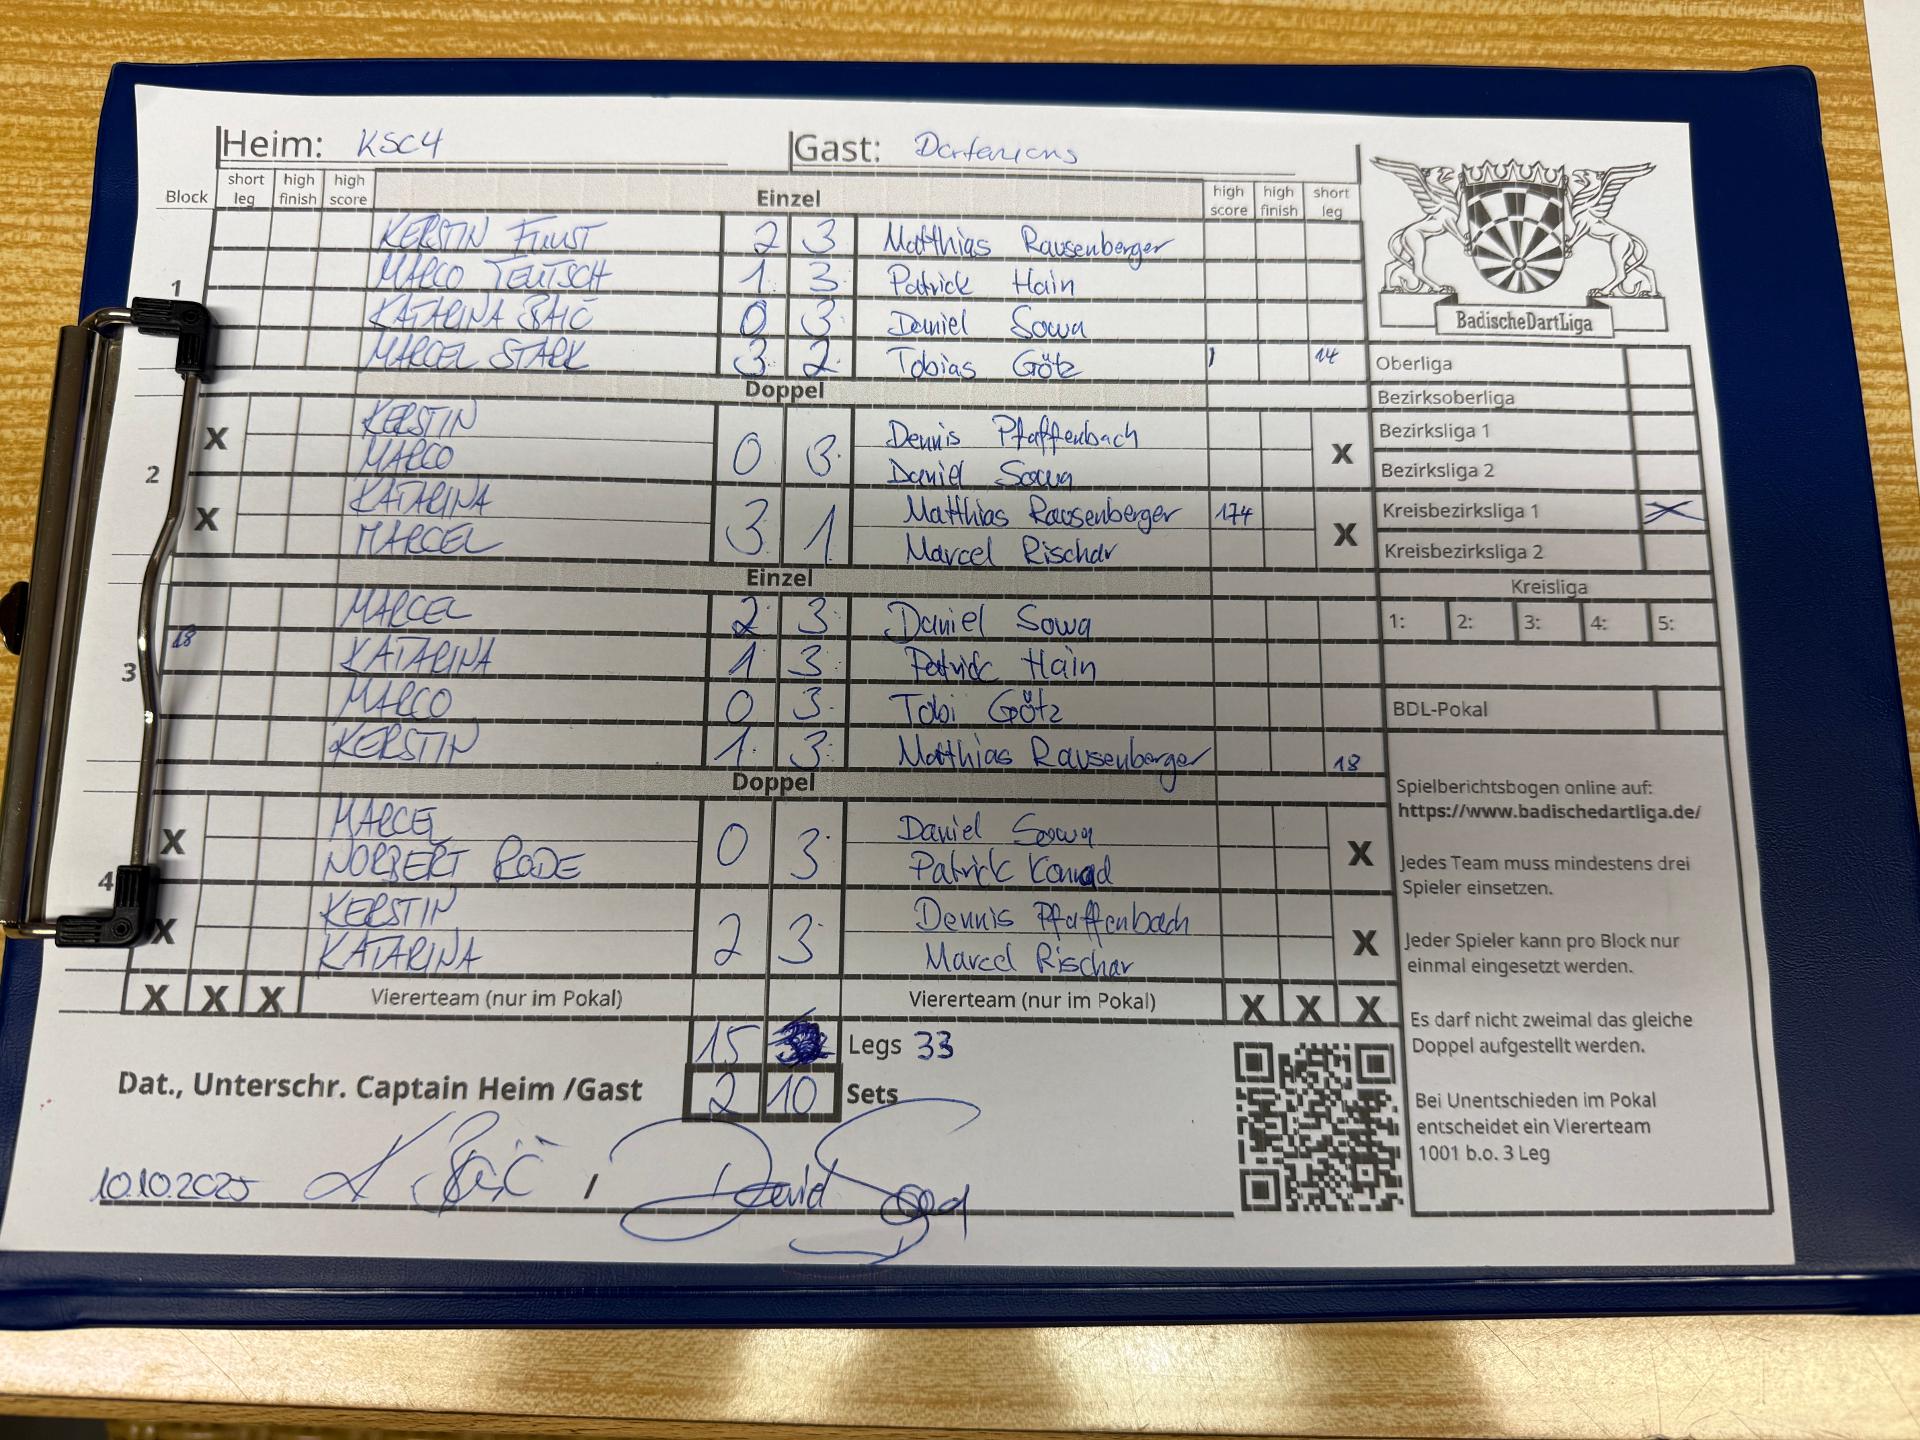 Heim: KSC4 Gast: Dartenians
Block short leg high finish high score Einzel high score high finish short leg
1
KERSTIN FUUST 2 3 Matthias Rausenberger
MARCO TEUTSCH 1 3 Patrick Hain
KATARINA BAIĆ 0 3 Daniel Sowa
MARCEL STARK 3 2 Tobias Götz 14
Doppel
2
X KERSTIN 0 3 Dennis Pfaffenbach X
MARCO Daniel Sowa
X KATARINA 3 1 Matthias Rausenberger 174 X
MARCEL Marcel Rischar
Einzel
3
MARCEL 2 3 Daniel Sowa
18 KATARINA 1 3 Patrick Hain
MARCO 0 3 Tobi Götz
KERSTIN 1 3 Matthias Rausenberger 18
Doppel
4
X MARCEL 0 3 Daniel Sowa X
NORBERT RODE Patrick Konrad
X KERSTIN 2 3 Dennis Pfaffenbach X
KATARINA Marcel Rischar
X X X Viererteam (nur im Pokal) Viererteam (nur im Pokal) X X X
15 Legs 33
Dat., Unterschr. Captain Heim /Gast 2 10 Sets
10.10.2025 K Baić / David
BadischeDartLiga
Oberliga
Bezirksoberliga
Bezirksliga 1
Bezirksliga 2
Kreisbezirksliga 1 X
Kreisbezirksliga 2
Kreisliga
1: 2: 3: 4: 5:
BDL-Pokal
Spielberichtsbogen online auf:
https://www.badischedartliga.de/
Jedes Team muss mindestens drei
Spieler einsetzen.
Jeder Spieler kann pro Block nur
einmal eingesetzt werden.
Es darf nicht zweimal das gleiche
Doppel aufgestellt werden.
Bei Unentschieden im Pokal
entscheidet ein Viererteam
1001 b.o. 3 Leg